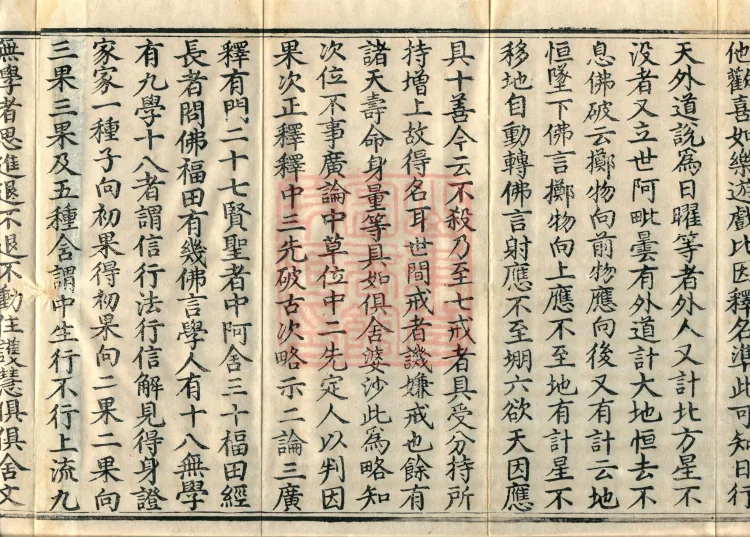 他歡喜如樂遊戲比因釋名準此可知日行
天外道說為日曜等者外人又計比方星不
没者又立世阿毗曇有外道計大地恒去不
息佛破云擲物向前物應向後又有計云地
恒墜下佛言擲物向上應不至地有計星不
移地自動轉佛言射應不至堋六欲天因應
具十善今云不殺乃至七戒者具受分持所
持增上故得名耳世間戒者譏嫌戒也餘有
諸天壽命身量等具如俱舍婆沙此為略知
次位不事廣論中草位中二先定人以判因
果次正釋釋中三先破古次略示二論三廣
釋有門二十七賢聖者中阿含三十福田經
長者問佛福田有幾佛言學人有十八無學
有九學十八者謂信行法行信解見得身證
家家一種子向初果得初果向二果二果向
三果三果及五種含謂中生行不行上流九
無學者思進退不退不動住護慧俱俱舍文